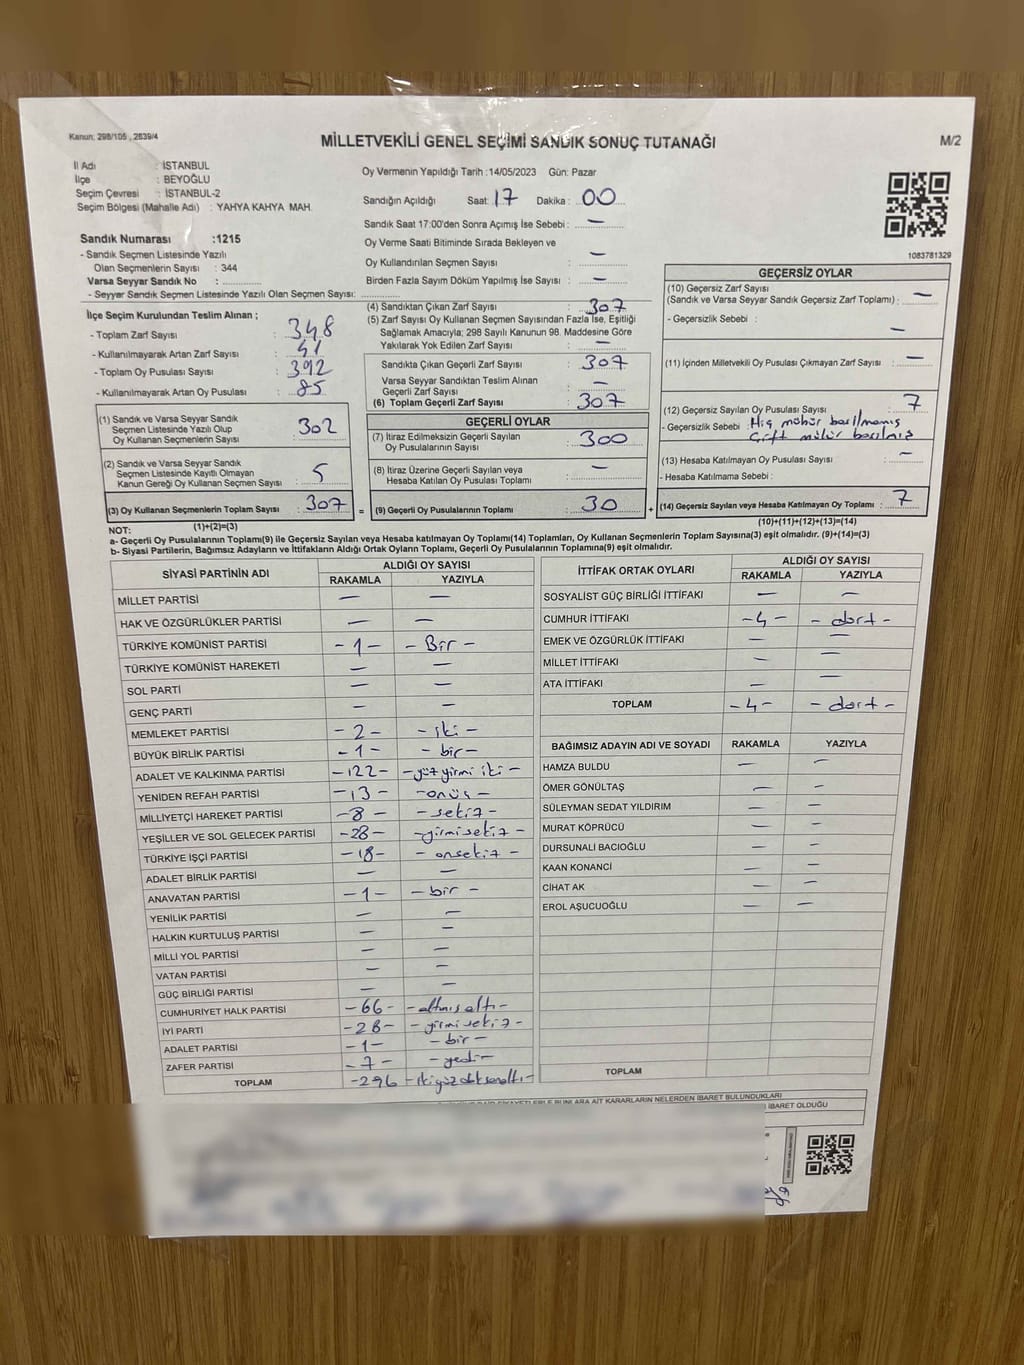 Kanun: 298/105 , 2839/4
MİLLETVEKİLİ GENEL SEÇİMİ SANDIK SONUÇ TUTANAĞI
M/2
İl Adı : İSTANBUL
İlçe : BEYOĞLU
Seçim Çevresi : İSTANBUL-2
Seçim Bölgesi (Mahalle Adı) : YAHYA KAHYA MAH.
Oy Vermenin Yapıldığı Tarih :14/05/2023 Gün: Pazar
Sandığın Açıldığı Saat: 17 Dakika : 00
Sandık Saat 17:00'den Sonra Açılmış İse Sebebi : —
Oy Verme Saati Bitiminde Sırada Bekleyen ve
Oy Kullandırılan Seçmen Sayısı : —
Birden Fazla Sayım Döküm Yapılmış İse Sayısı : —
1083781329
Sandık Numarası :1215
- Sandık Seçmen Listesinde Yazılı
Olan Seçmenlerin Sayısı : 344
Varsa Seyyar Sandık No :
- Seyyar Sandık Seçmen Listesinde Yazılı Olan Seçmen Sayısı:
İlçe Seçim Kurulundan Teslim Alınan ;
- Toplam Zarf Sayısı : 348
- Kullanılmayarak Artan Zarf Sayısı : 41
- Toplam Oy Pusulası Sayısı : 392
- Kullanılmayarak Artan Oy Pusulası : 85
(1) Sandık ve Varsa Seyyar Sandık
Seçmen Listesinde Yazılı Olup
Oy Kullanan Seçmenlerin Sayısı : 302
(2) Sandık ve Varsa Seyyar Sandık
Seçmen Listesinde Kayıtlı Olmayan
Kanun Gereği Oy Kullanan Seçmen Sayısı : 5
(3) Oy Kullanan Seçmenlerin Toplam Sayısı : 307
(1)+(2)=(3)
(4) Sandıktan Çıkan Zarf Sayısı : 307
(5) Zarf Sayısı Oy Kullanan Seçmen Sayısından Fazla İse, Eşitliği
Sağlamak Amacıyla; 298 Sayılı Kanunun 98. Maddesine Göre
Yakılarak Yok Edilen Zarf Sayısı : —
Sandıkta Çıkan Geçerli Zarf Sayısı : 307
Varsa Seyyar Sandıktan Teslim Alınan
Geçerli Zarf Sayısı : —
(6) Toplam Geçerli Zarf Sayısı : 307
GEÇERLİ OYLAR
(7) İtiraz Edilmeksizin Geçerli Sayılan
Oy Pusulalarının Sayısı : 300
(8) İtiraz Üzerine Geçerli Sayılan veya
Hesaba Katılan Oy Pusulası Toplamı : —
= (9) Geçerli Oy Pusulalarının Toplamı : 30 +
GEÇERSİZ OYLAR
(10) Geçersiz Zarf Sayısı
(Sandık ve Varsa Seyyar Sandık Geçersiz Zarf Toplamı) : —
- Geçersizlik Sebebi : —
(11) İçinden Milletvekili Oy Pusulası Çıkmayan Zarf Sayısı : —
(12) Geçersiz Sayılan Oy Pusulası Sayısı : 7
- Geçersizlik Sebebi : Hiç mühür basılmamış
Çift mühür basılmış
(13) Hesaba Katılmayan Oy Pusulası Sayısı : —
- Hesaba Katılmama Sebebi :
(14) Geçersiz Sayılan veya Hesaba Katılmayan Oy Toplamı : 7
(10)+(11)+(12)+(13)=(14)
NOT:
a- Geçerli Oy Pusulalarının Toplamı(9) ile Geçersiz Sayılan veya Hesaba katılmayan Oy Toplamı(14) Toplamları, Oy Kullanan Seçmenlerin Toplam Sayısına(3) eşit olmalıdır. (9)+(14)=(3)
b- Siyasi Partilerin, Bağımsız Adayların ve İttifakların Aldığı Ortak Oyların Toplamı, Geçerli Oy Pusulalarının Toplamına(9) eşit olmalıdır.
SİYASİ PARTİNİN ADI ALDIĞI OY SAYISI
RAKAMLA YAZIYLA
MİLLET PARTİSİ — —
HAK VE ÖZGÜRLÜKLER PARTİSİ — —
TÜRKİYE KOMÜNİST PARTİSİ -1- -Bir-
TÜRKİYE KOMÜNİST HAREKETİ — —
SOL PARTİ — —
GENÇ PARTİ — —
MEMLEKET PARTİSİ -2- -iki-
BÜYÜK BİRLİK PARTİSİ -1- -bir-
ADALET VE KALKINMA PARTİSİ -122- -yüz yirmi iki-
YENİDEN REFAH PARTİSİ -13- -onüç-
MİLLİYETÇİ HAREKET PARTİSİ -8- -sekiz-
YEŞİLLER VE SOL GELECEK PARTİSİ -28- -yirmisekiz-
TÜRKİYE İŞÇİ PARTİSİ -18- -onsekiz-
ADALET BİRLİK PARTİSİ — —
ANAVATAN PARTİSİ -1- -bir-
YENİLİK PARTİSİ — —
HALKIN KURTULUŞ PARTİSİ — —
MİLLİ YOL PARTİSİ — —
VATAN PARTİSİ — —
GÜÇ BİRLİĞİ PARTİSİ — —
CUMHURİYET HALK PARTİSİ -66- -altmışaltı-
İYİ PARTİ -28- -yirmisekiz-
ADALET PARTİSİ -1- -bir-
ZAFER PARTİSİ -7- -yedi-
TOPLAM -296 -ikiyüz doksanaltı-
İTTİFAK ORTAK OYLARI ALDIĞI OY SAYISI
RAKAMLA YAZIYLA
SOSYALİST GÜÇ BİRLİĞİ İTTİFAKI — —
CUMHUR İTTİFAKI -4- -dört-
EMEK VE ÖZGÜRLÜK İTTİFAKI — —
MİLLET İTTİFAKI — —
ATA İTTİFAKI — —
TOPLAM -4- -dört-
BAĞIMSIZ ADAYIN ADI VE SOYADI RAKAMLA YAZIYLA
HAMZA BULDU — —
ÖMER GÖNÜLTAŞ — —
SÜLEYMAN SEDAT YILDIRIM — —
MURAT KÖPRÜCÜ — —
DURSUNALİ BACIOĞLU — —
KAAN KONANCİ — —
CİHAT AK — —
EROL AŞUCUOĞLU — —
TOPLAM
KARARLARIN NELERDEN İBARET BULUNDUKLARI
İBARET OLDUĞU